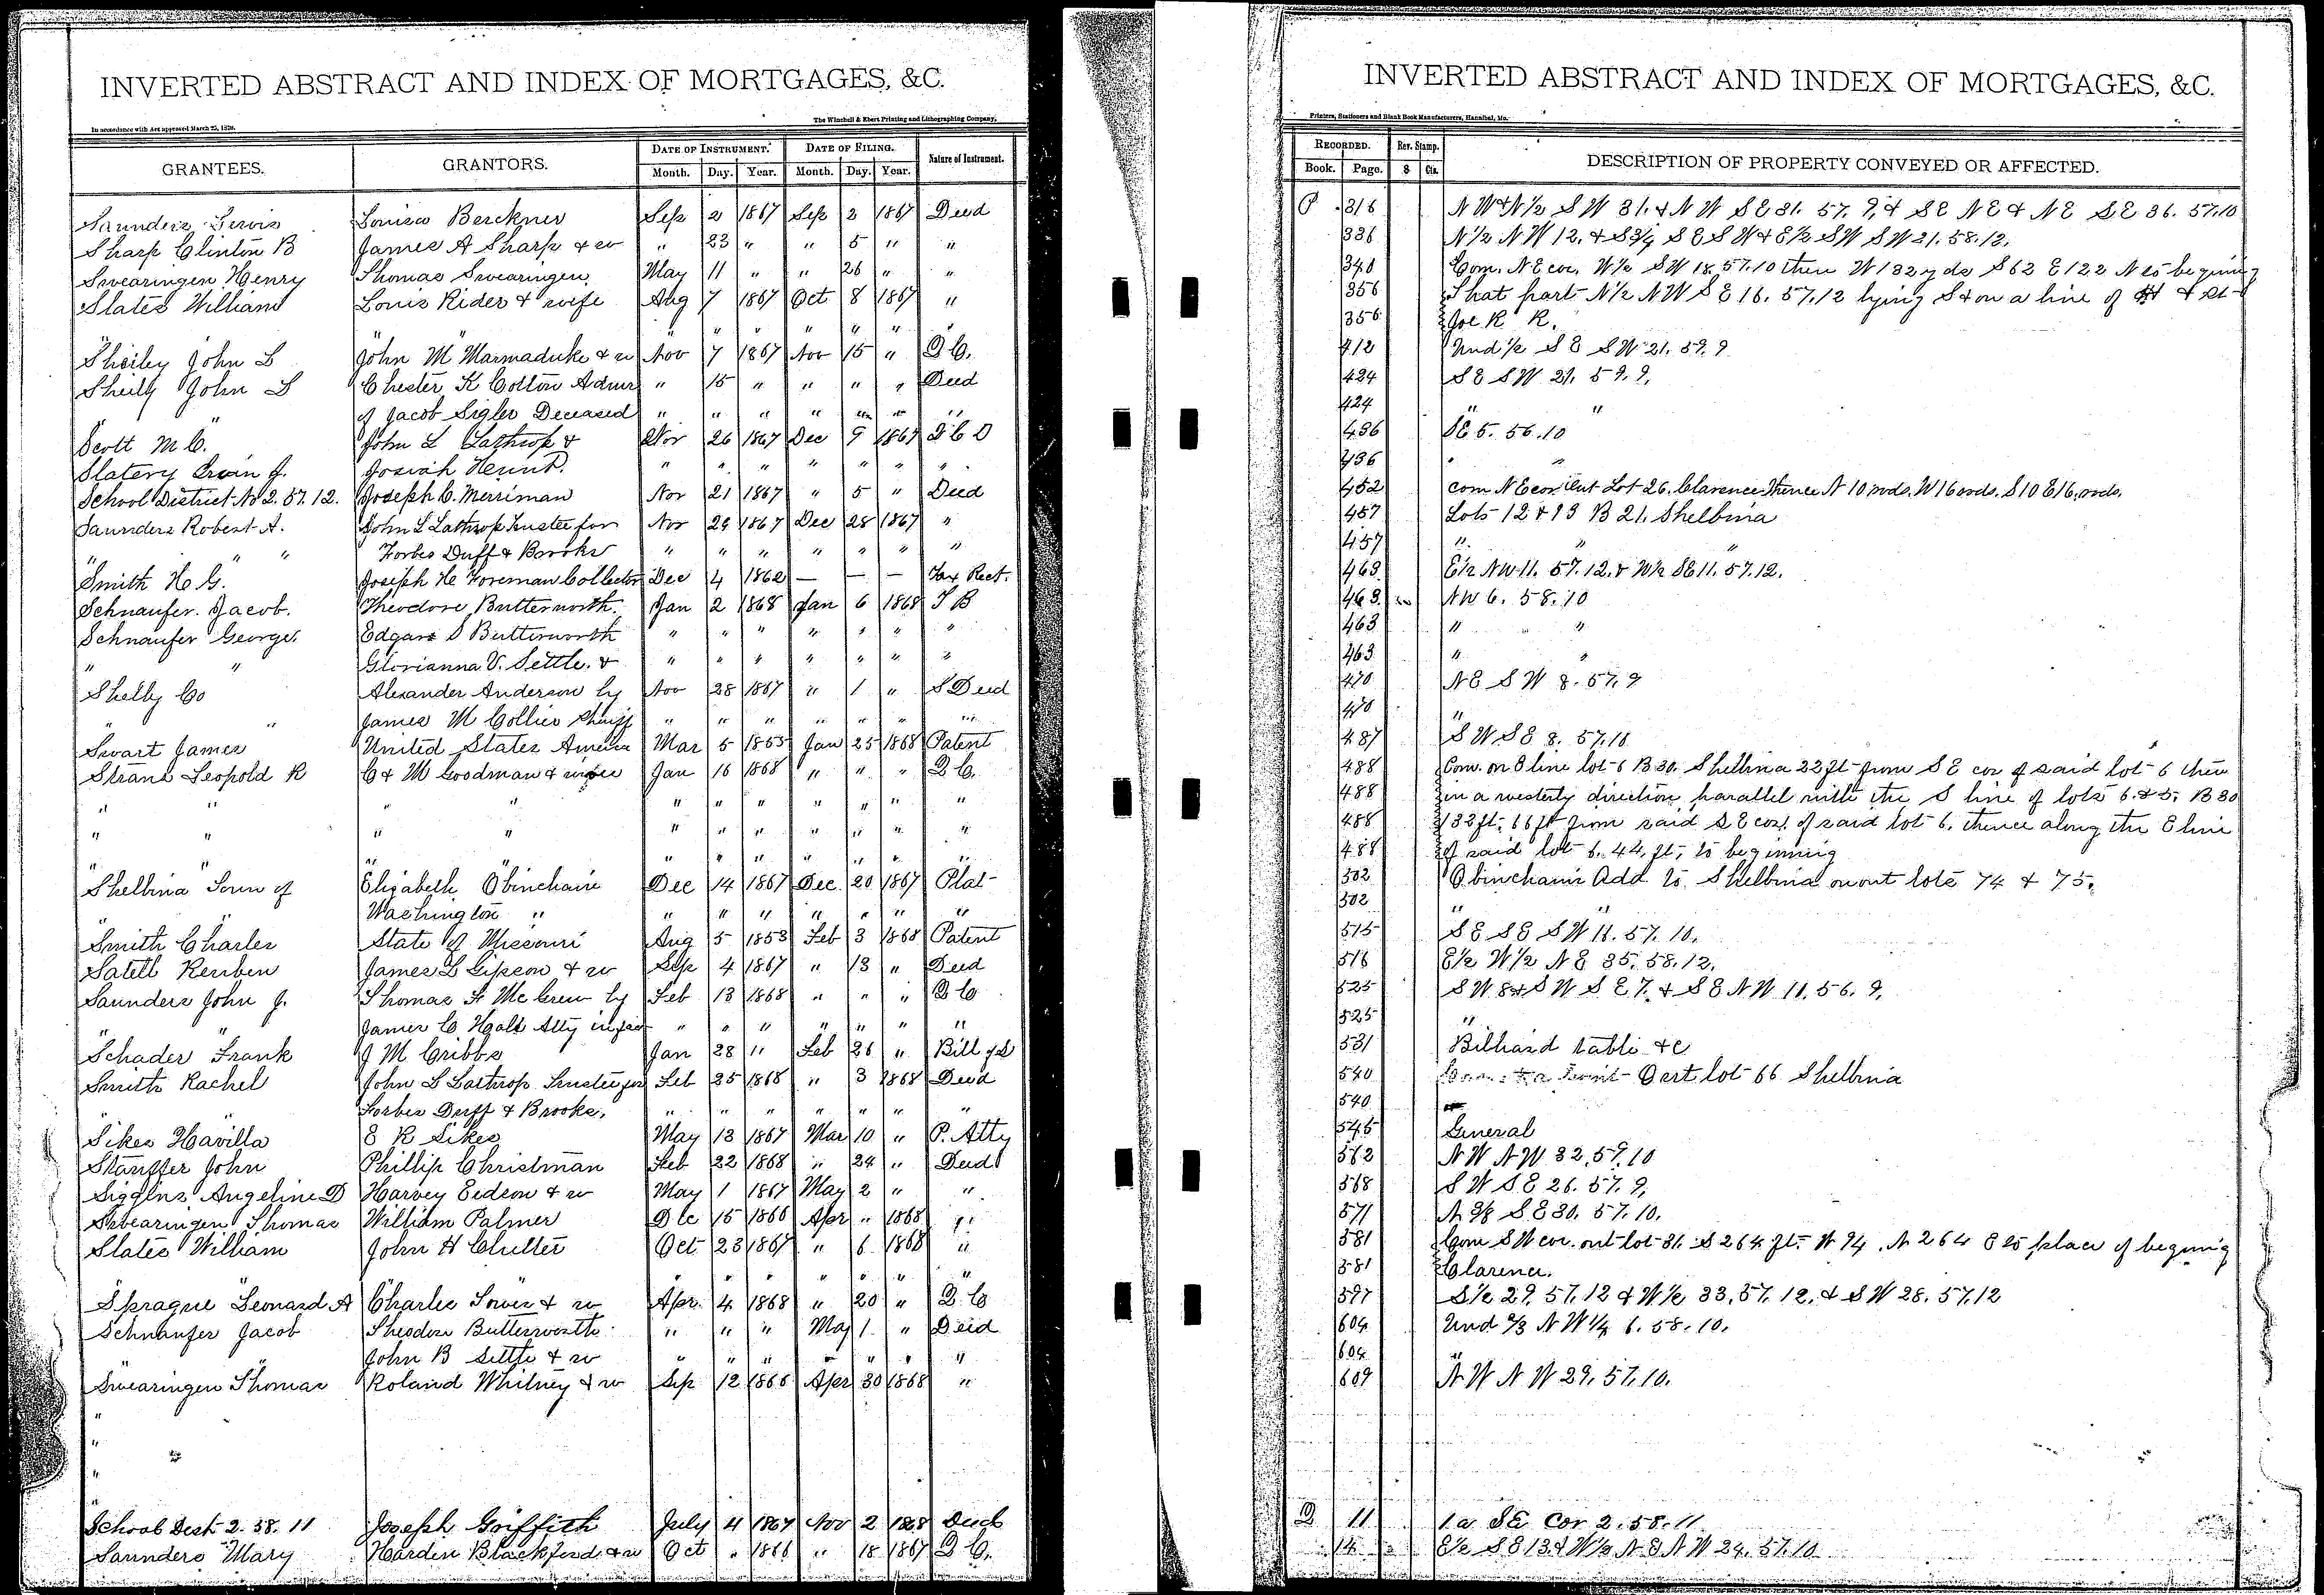 INVERTED ABSTRACT AND INDEX OF MORTGAGES, &C.
In accordance with Act approved March 25, 18
The Winchell & Ebert Printing and Lithographing Company,
GRANTEES. GRANTORS. DATE OF INSTRUMENT. DATE OF FILING. Nature of Instrument.
Month. Day. Year. Month. Day. Year.
Saunders Louisa Berckner Sep 2 1867 Sep 2 1867 Deed
Sharp Clinton B James A Sharp & w " 23 " " 5 " "
Swearingen Henry Thomas Swearingen May 11 " " 26 " "
Slates William Louis Rider & wife Aug 7 1867 Oct 8 1867 "
" " " " " "
Sheiley John L John M Marmaduke & w Nov 7 1867 Nov 15 " Q C.
Sheily John L Chester K Cotton Admr " 15 " " " " Deed
" " of Jacob Sigler Deceased " " " " " " "
Scott M C. John L Lathrop & Nov 26 1867 Dec 9 1867 Q C D
Slatery J. Josiah Hunt. " " " " " " "
School District No 2. 57. 12. Joseph C. Merriman Nov 21 1867 " 5 " Deed
Saunders Robert A. John L Lathrop Trustee for Nov 29 1867 Dec 28 1867 "
" " " Forbes Duff & Brooks " " " " " " "
Smith H. G. Joseph H Foreman Collector Dec 4 1862 — — — Tax Rect.
Schnaufer. Jacob. Theodore Butterworth. Jan 2 1868 Jan 6 1868 T B
Schnaufer George. Edgar S Butterworth " " " " " " "
" " Glorianna V. Settle. & " " " " " " "
Shelby Co Alexander Anderson by Nov 28 1867 " 1 " S Deed
" " James M Collier Sheriff " " " " " " "
Swart James United States America Mar 5 1855 Jan 25 1868 Patent
Strans Leopold R C & M Goodman & wife Jan 16 1868 " " " Q C.
" " " " " " " " " " "
" " " " " " " " " " "
" " " " " " " " " "
Shelbina Town of Elizabeth Obinchain Dec 14 1867 Dec. 20 1867 Plat
" " Washington " " " " " " " "
Smith Charles State of Missouri Aug 5 1853 Feb 3 1868 Patent
Satell Reuben James L Gipson & w Sep 4 1867 " 13 " Deed
Saunders John J. Thomas F McCrew by Feb 13 1868 " " " Q C
" " James C Hall Atty in fac " " " " " " "
Schader Frank J M Cribbs Jan 28 " Feb 26 " Bill of S
Smith Rachel John L Lathrop Trustee for Feb 25 1868 " 3 1868 Deed
Forbes Duff & Brooks, " " " " " " "
Sikes Havilla E R Sikes May 13 1867 Mar 10 " P. Atty
Stauffer John Phillip Christman Feb 22 1868 " 24 " Deed
Siggins Angeline D Harvey Eidson & w May 1 1867 May 2 " "
Swearingen Thomas William Palmer Dec 15 1866 Apr " 1868 "
Slates William John H Oct 23 1867 " 6 1868 "
" " " " " " " "
Sprague Leonard A Charles Tower & w Apr. 4 1868 " 20 " Q. C
Schnaufer Jacob Theodore Butterworth " " " May 1 " Deed
" " John B Settle & w " " " " " " "
Swearingen Thomas Roland Whitney & w Sep 12 1866 Apr 30 1868 "
"
"
"
"
"
School Dest 2. 58. 11 Joseph Griffith July 4 1867 Nov 2 1868 Deed
Saunders Mary Harden & w Oct " 1866 " 18 1867 Q C.
INVERTED ABSTRACT AND INDEX OF MORTGAGES, &C.
Printers, Stationers and Blank Book Manufacturers, Hannibal, Mo.
RECORDED. Rev. Stamp. DESCRIPTION OF PROPERTY CONVEYED OR AFFECTED.
Book. Page. $ Cts.
P 316 N W & N ½ S W 31. & N W S E 31. 57. 9, & S E N E & N E S E 36. 57.10
336 N ½ N W 12. & S ¾ S E S W & E ½ S W S W 21. 58. 12.
340 Com. N E cor. W ½ S W 18. 57. 10 then W 132 yds S 62 E 122 N to begining
356 That part N ½ N W S E 16. 57. 12 lying S & on a line of H & St
356 Joe R R.
412 Und ½ S E S W 21. 59. 9
424 S E S W 21. 59. 9.
424 " "
436 S E 5. 56. 10
436 " "
452 com N E cor out Lot 26. Clarence thence N 10 rods. W 16 rods. S 10 E 16. rods.
457 Lots 12 & 13 B 21. Shelbina
457 " " "
463 E ½ N W 11. 57. 12. & W ½ S E 11. 57. 12.
463. N W 6. 58. 10
463 " "
463 " "
470 N E S W 8. 57. 9
470 "
487 S W S E 8. 57. 10
488 Com. on E line lot 6 B 30. Shelbina 22 ft from S E cor of said lot 6 then
488 in a westerly direction parallel with the S line of lots 6. & 5. B 30
488 132 ft. 66 ft from said S E cor. of said lot 6. thence along the E line
488 of said lot 6. 44. ft. to beginning
502 Obinchain's Add. to Shelbina on out lots 74 & 75.
502 " "
515 S E S E S W 11. 57. 10.
516 E ½ W ½ N E 35. 58. 12.
525 S W 8 & S W S E 7. & S E N W 11. 56. 9.
525 "
531 Billiard table &c
540 Out lot 66 Shelbina
540
545 General
562 N W N W 32. 57. 10
568 S W S E 26. 57. 9,
571 S E 30. 57. 10.
581 Com S W cor. out lot 31. S 264 ft. W 94. N 264 E to place of begining
581 Clarence.
597 S ½ 29. 57. 12 & W ½ 33. 57. 12. & S W 28. 57. 12
604 Und ⅔ N W ¼ 6. 58. 10.
604 "
609 N W N W 29. 57. 10.
Q 11 1 a SE Cor 2. 58. 11
14 E ½ S E 13 & W ½ N E N W 24. 57. 10